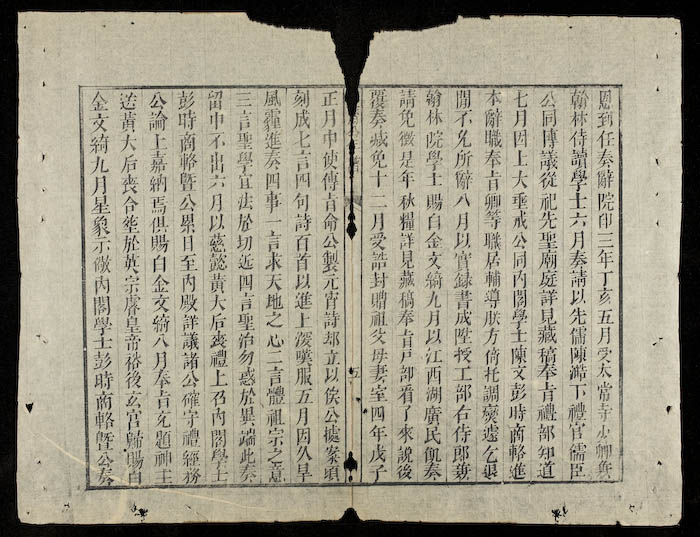 恩到任奏辭院印三年丁亥五月受太常寺少卿兼
翰林侍讀學士六月奏請以先儒陳澔下禮官儒臣
公同博議從祀先聖廟庭詳見藏稿奉旨禮部知道
七月因上大垂戒公同內閣學士陳文彭時商輅進
本辭職奉旨卿等職居輔導朕方倚托調燮遽乞退
閒不允所辭八月以實錄書成陞授工部右侍郎兼
翰林院學士賜白金文綺九月以江西湖廣民飢奏
請免徵是年秋糧詳見藏稿奉旨戶部看了來說後
覆奏蒇免十二月受誥封贈祖父母妻室四年戊子
正月中使傳旨命公製元宵詩却立以俟公據案頃
刻成七言四句詩百首以進上深嘆服五月因久旱
風霾進奏四事一言求天地之心二言體祖宗之意
三言聖學宜法於切近四言聖治勿惑於異端此奏
留中不出六月以慈懿黃大后喪禮上召內閣學士
彭時商輅暨公累日至內殿詳議諸公確守禮經務
公論上嘉納焉俱賜白金文綺八月奉旨充題神主
送黃大后喪合塟於英宗睿皇帝裕後玄宮歸賜白
金文綺九月星象示儆內閣學士彭時商輅暨公奏